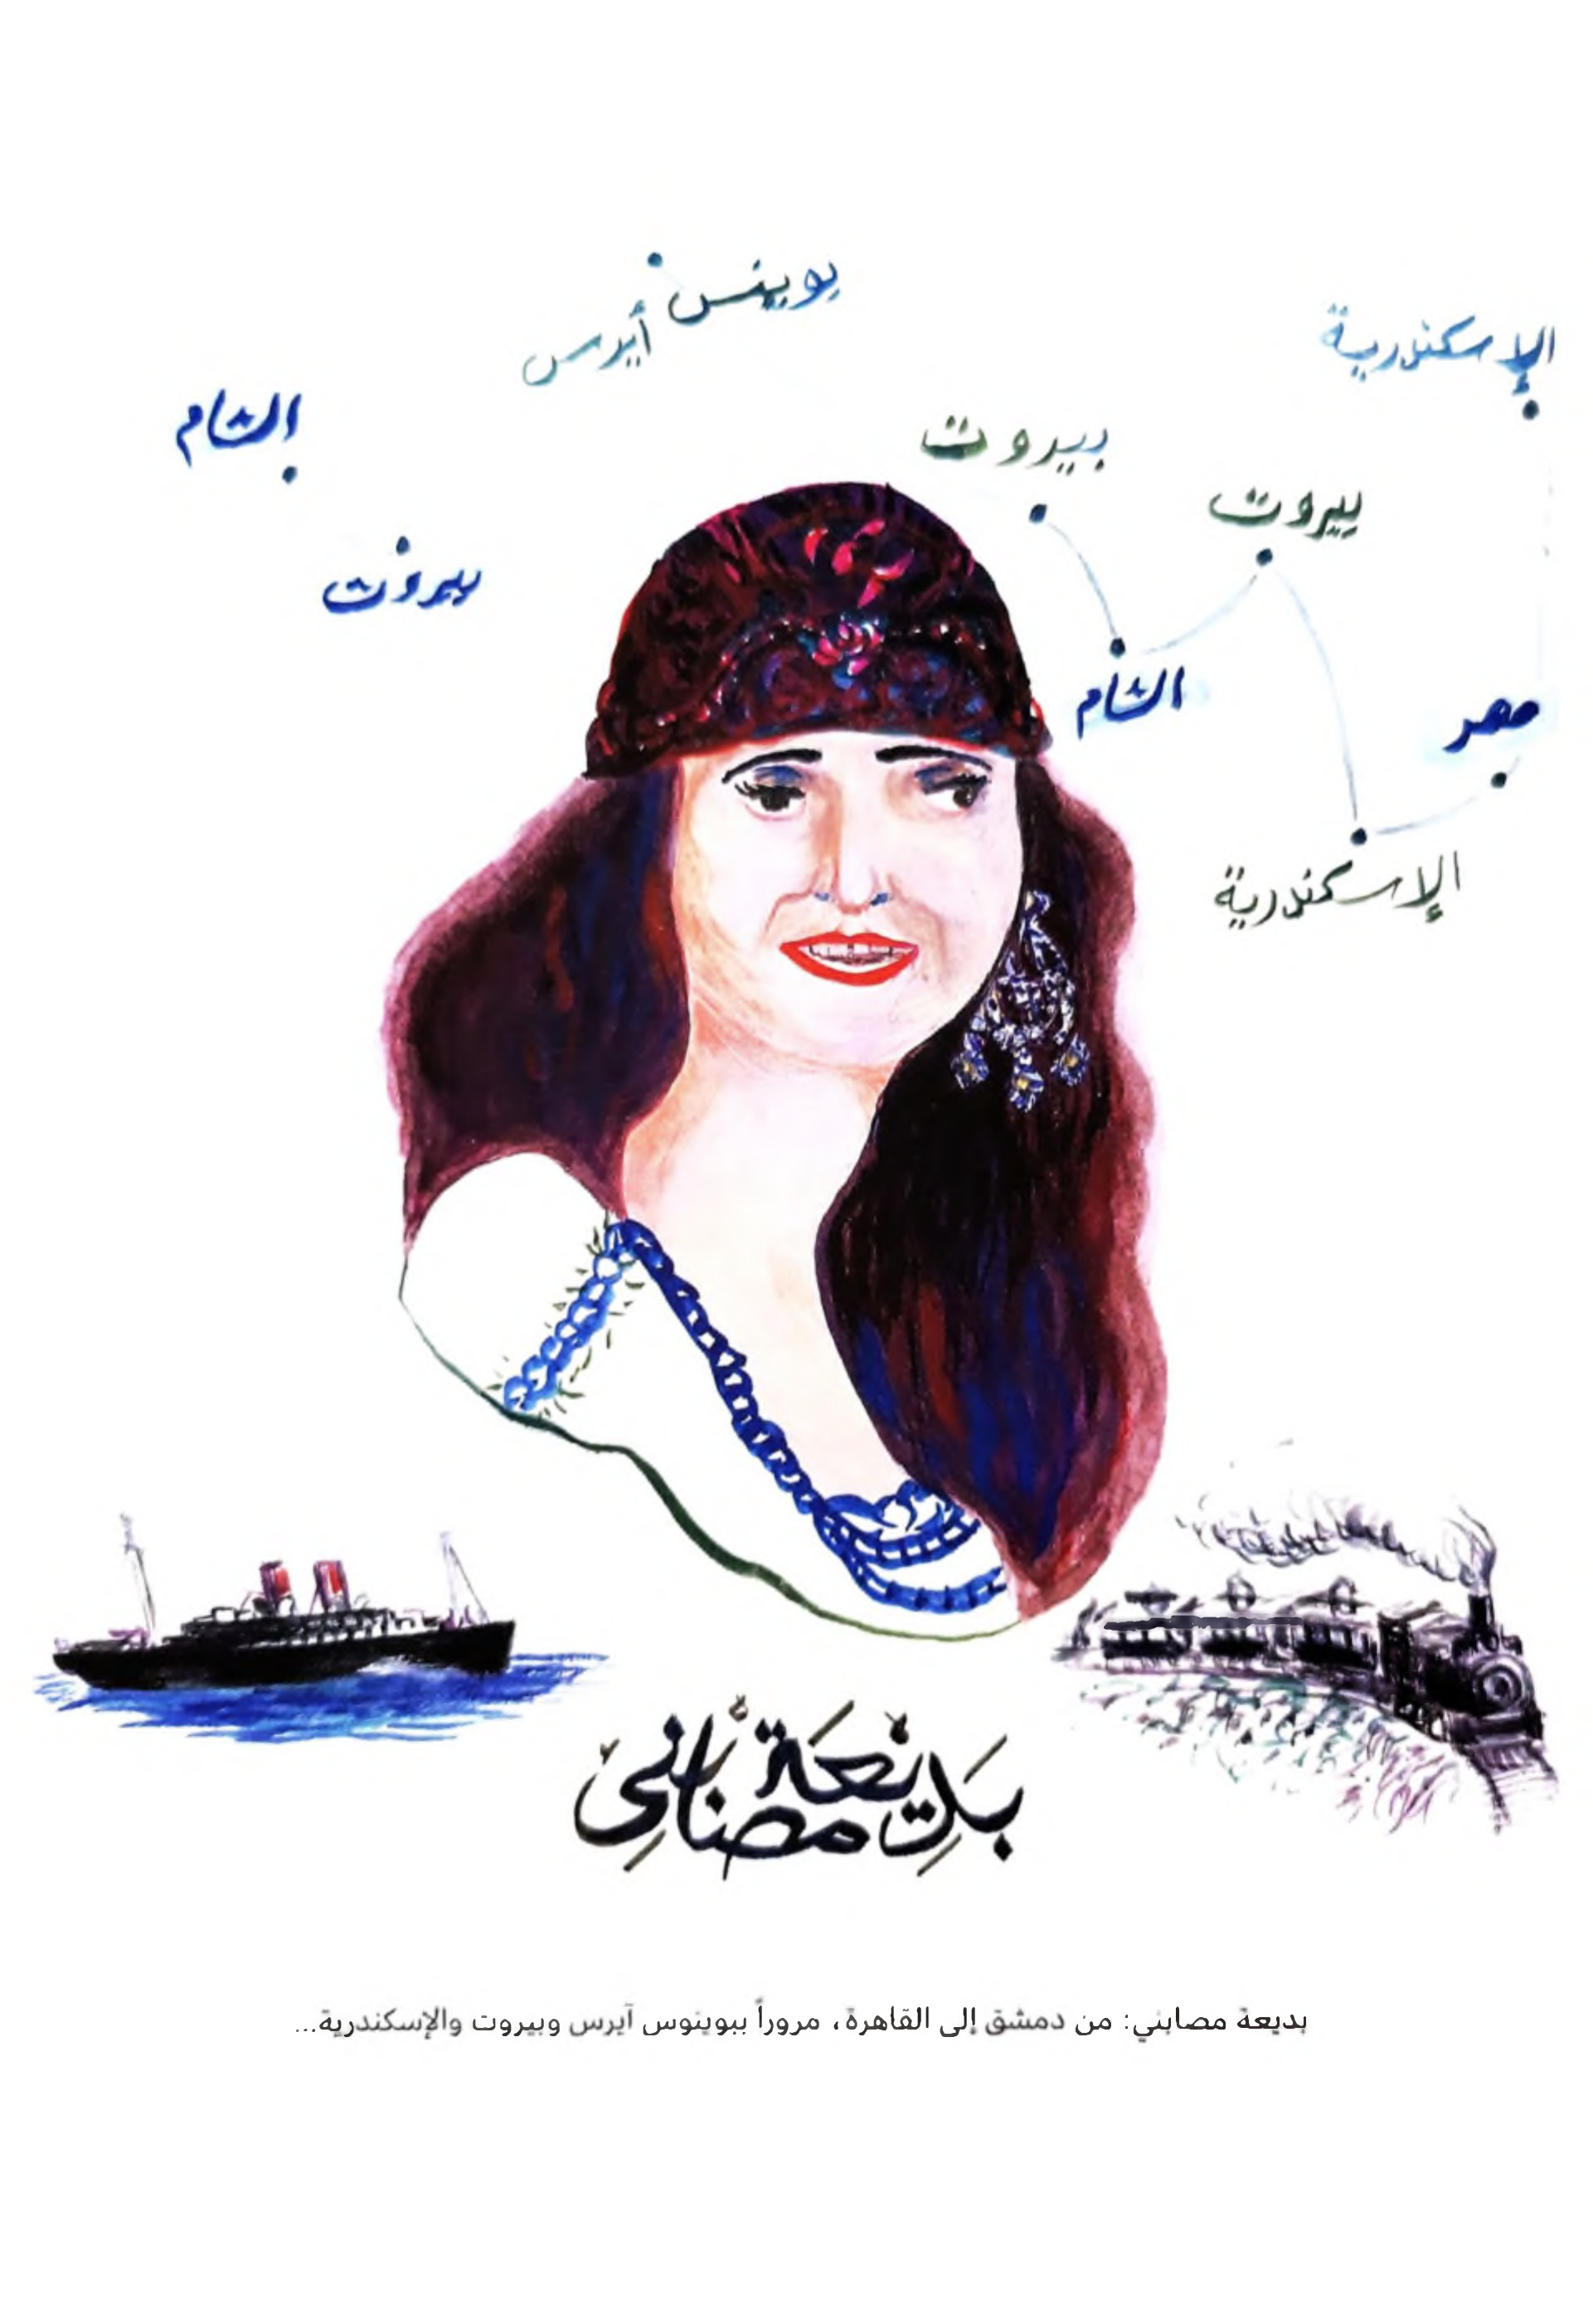 بوينس
أيرس
الإسكندرية
الشام
بيروت
بيروت
بيروت
الشام
مصر
الإسكندرية
بَدِيْعَة
مصابني
بديعة مصابني: من دمشق إلى القاهرة، مروراً ببوينوس آيرس وبيروت والإسكندرية...